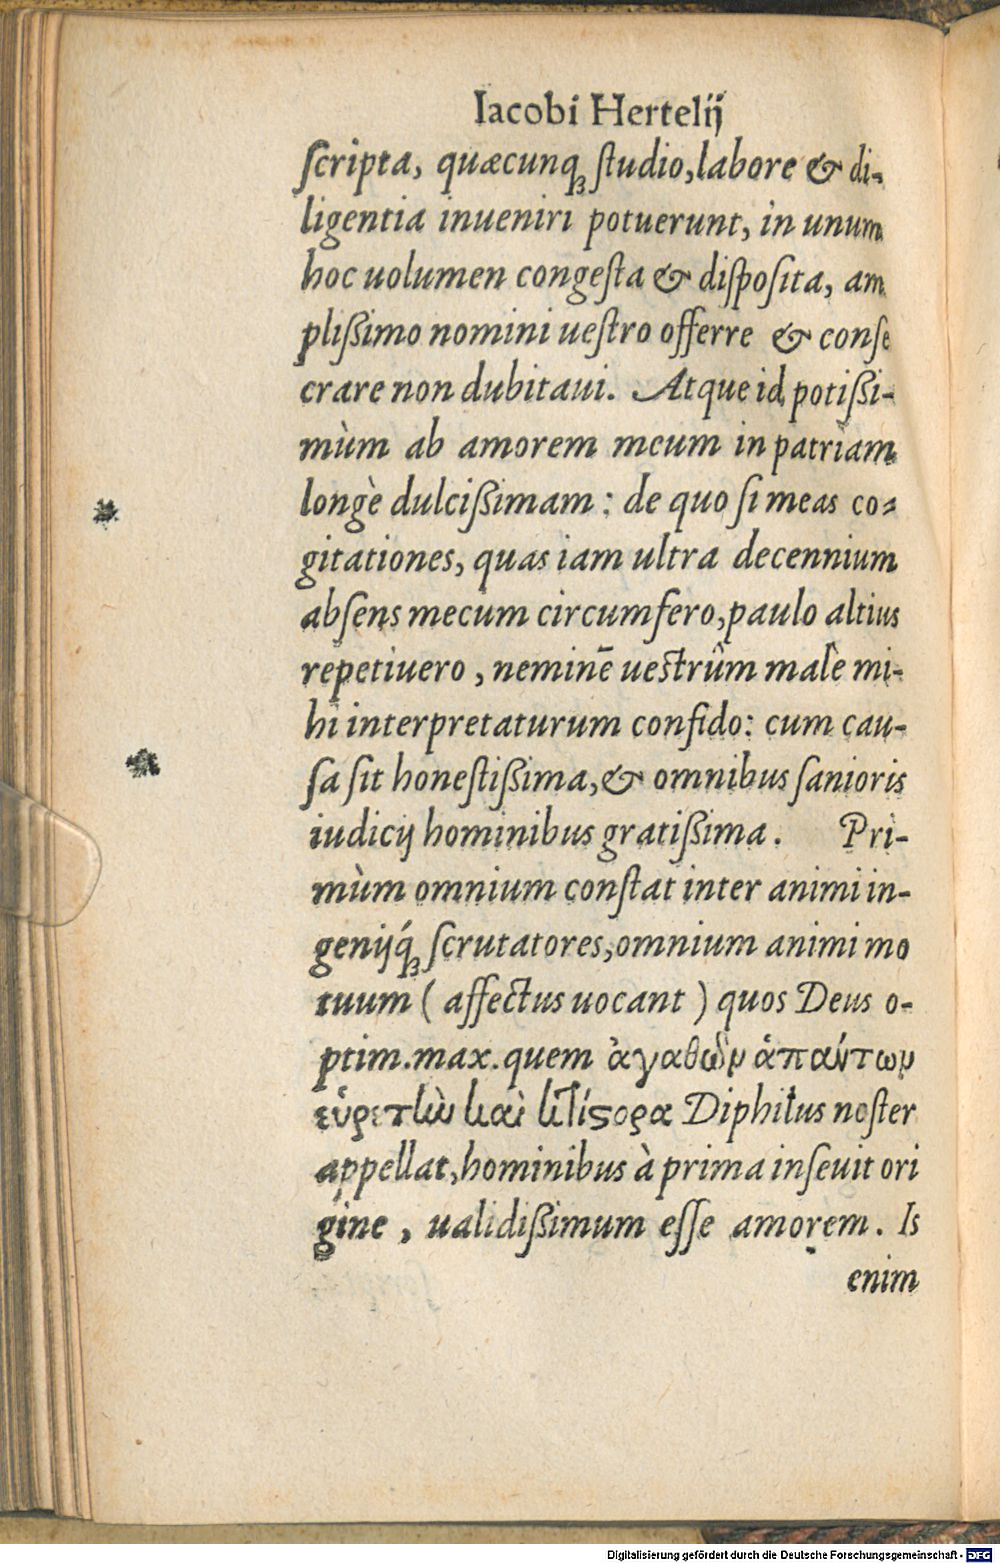 Iacobi Hertelij
ſcripta, quæcunqꝫ ſtudio, labore & di-
ligentia inueniri potuerunt, in unum
hoc uolumen congeſta & diſpoſita, am
plißimo nomini ueſtro offerre & conſe
crare non dubitaui. Atque id potißi-
mùm ab amorem meum in patriam
longè dulcißimam: de quo ſi meas co-
gitationes, quas iam ultra decennium
abſens mecum circumfero, paulo altius
repetiuero, neminē uestrûm malè mi-
hi interpretaturum confido: cum cau-
ſa ſit honeſtißima, & omnibus ſanioris
iudicij hominibus gratißima. Pri-
mùm omnium conſtat inter animi in-
genijq́ꝫ ſcrutatores, omnium animi mo
tuum (affectus uocant) quos Deus o-
ptim. max. quem ἀγαθῶν ἁπάντων
εὑρετὴν καὶ κτίστορα Diphilus noſter
appellat, hominibus à prima inſeuit ori
gine, ualidißimum eſſe amorem. Is
enim
Digitalisierung gefördert durch die Deutsche Forschungsgemeinschaft - DFG